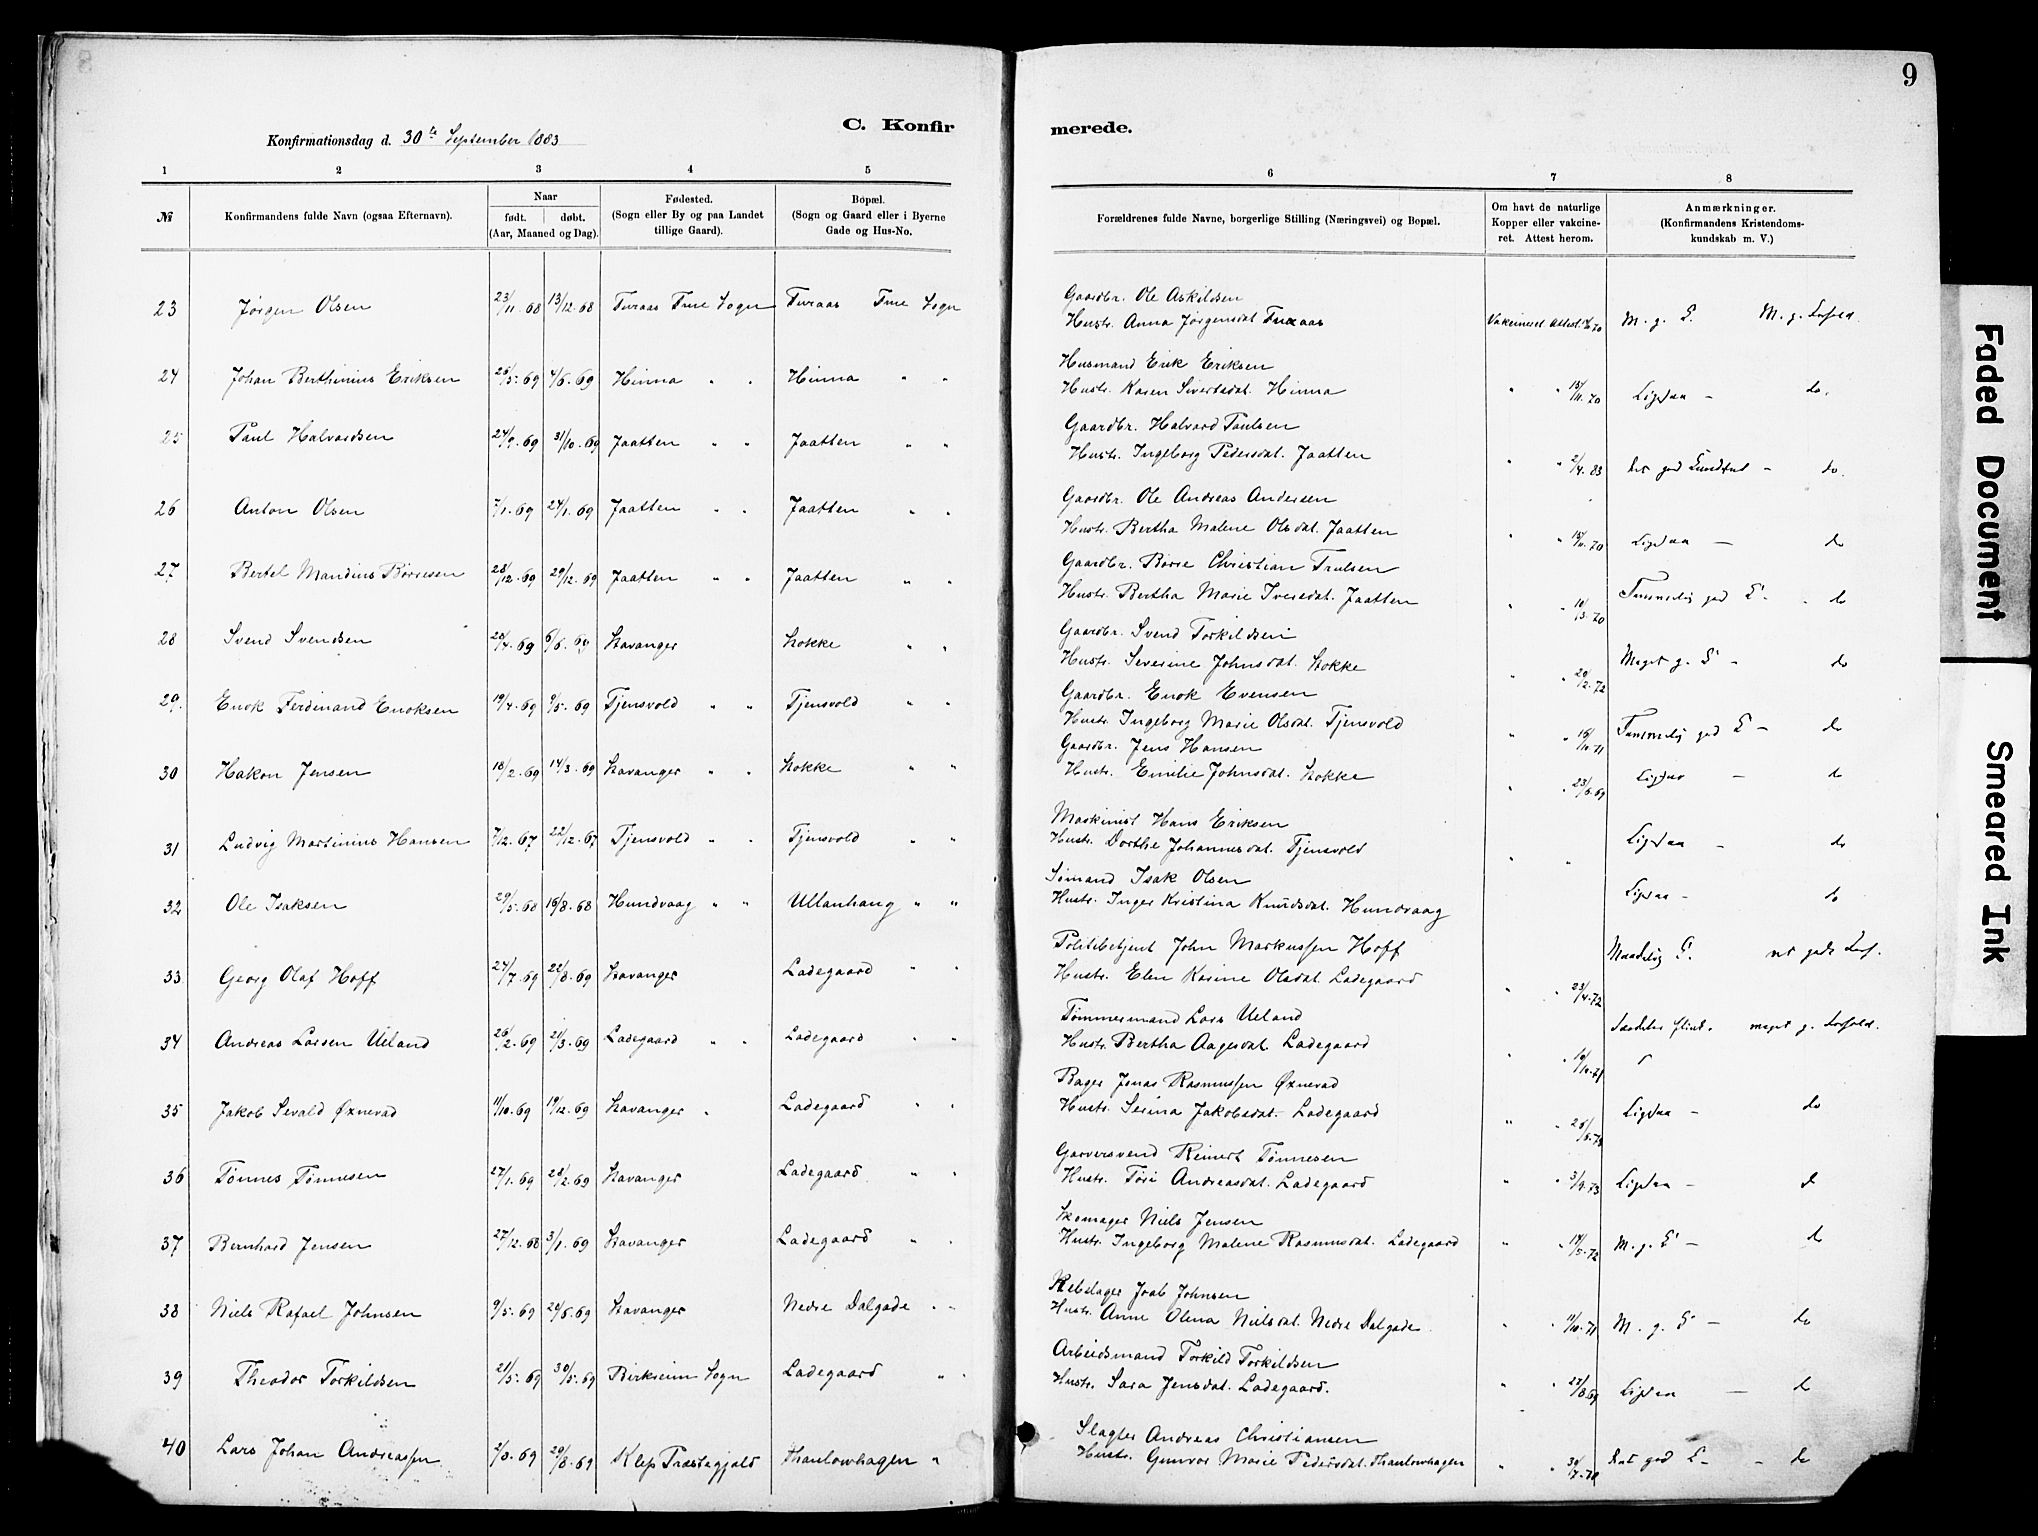 9
Konfirmationsdag d. 30te September 1883
C. Konfir
merede.
1 2 3 4 5
6 7 8
№ Konfirmandens fulde Navn (ogsaa Efternavn). Naar født. døbt. (Aar, Maaned og Dag). Fødested. (Sogn eller By og paa Landet tillige Gaard). Bopæl. (Sogn og Gaard eller i Byerne Gade og Hus-No.
Forældrenes fulde Navne, borgerlige Stilling (Næringsvei) og Bopæl. Om havt de naturlige Kopper eller vakcineret. Attest herom. Anmærkninger. (Konfirmandens Kristendomskundskab m. V.)
23 Jørgen Olsen 23/11.68 13/12.68 Turaas Tine Sogn Turaas Tine Sogn
Gaardbr. Ole Askildsen
Hustr. Anna Jørgensdat. Vakcineret Attest M. g. M. g. Forhold.
24 Johan Berthinius Eriksen 26/5.69 4/6.69 Hinna " " Hinna " "
Husmand Erik Eriksen
Hustr. Karen Sivertsdat. Hinna " " 15/11.70 Ligesaa — do.
25 Paul Halvardsen 24/9.69 31/10.69 Jaatten " " Jaatten " "
Gaardbr. Halvard Paulsen
Hustr. Ingeborg Pedersdat. Jaatten " " 2/4.83 god Kundskab — do.
26 Anton Olsen 7/1.69 24/1.69 Jaatten " " Jaatten " "
Gaardbr. Ole Andreas Andersen
Hustr. Bertha Malene Olsdat. Jaatten " " 15/11.70 Ligesaa — do
27 Bertel Mandius Børresen 28/12.69 29/12.69 Jaatten " " Jaatten " "
Gaardbr. Børre Christian Trulsen
Hustr. Bertha Marie Iversdat. Jaatten " " 10/3.70 Temmelig god — do
28 Svend Svendsen 28/4.69 6/6.69 Stavanger Stokke " "
Gaardbr. Svend Torkildsen
Hustr. Severine Johnsdat. Stokke " " 29/2.72 Meget g. — do
29. Enok Ferdinand Enoksen 19/4.69 9/5.69 Tjensvold " " Tjensvold " "
Gaardbr. Enok Evensen
Hustr. Ingeborg Marie Olsdat. Tjensvold " " Temmelig god — do
30 Hakon Jensen 18/2.69 14/3.69 Stavanger " " Stokke " "
Gaardbr. Jens Hansen
Hustr. Emilie Johnsdat. Stokke " " 23/6.69 Ligesaa — do
31 Ludvig Martinius Hansen 7/12.67 22/12.67 Tjensvold " " Tjensvold " "
Maskinist Hans Eriksen
Hustr. Dorthe Johannesdat. Tjensvold " " Ligesaa — do
32 Ole Isaksen 29/5.68 16/8.68 Hundvaag " " Ullanhaug " "
Sømand Isak Olsen
Hustr. Inger Kristina Knudsdat. Hundvaag Ligesaa — do
33 Georg Olaf Hoff 24/7.69 22/8.69 Stavanger Ladegaard " "
Politibetjent John Markussen Hoff
Hustr. Elen Karine Olsdat. Ladegaard " " 23/4.72 Maadelig
34 Andreas Larsen Ueland 26/2.69 21/3.69 Ladegaard " " Ladegaard " "
Tømmermand Lars Ueland
Hustr. Bertha Aagesdat. Ladegaard " " Særdeles flink. meget g. Forhold.
35 Jakob Sevald Øxnevad 11/10.69 19/12.69 Stavanger " Ladegaard " "
Bager Jonas Rasmussen Øxnevad
Hustr. Serina Jakobsdat. Ladegaard " " Ligesaa — do
36 Tønnes Tønnesen 27/1.69 28/2.69 Stavanger Ladegaard " "
Garversvend Reinert Tønnesen
Hustr. Tøri Andreasdat. Ladegaard " " Ligesaa — do
37 Bernhard Jensen 27/12.68 3/1.69 Stavanger Ladegaard " "
Skomager Niels Jensen
Hustr. Ingeborg Malene Rasmusdat. Ladegaard " " 14/5.72 M. g. — do
38 Niels Rafael Johnsen 9/5.69 20/6.69 Stavanger Nedre Dalgade " "
Rebslager Joab Johnsen
Hustr. Anne Olena Nielsdat. Nedre Dalgade " " 11/10.71 M. g. — do
39 Theodor Torkildsen 21/5.69 30/5.69 Birkreim Sogn Ladegaard " "
Arbeidsmand Torkild Torkildsen
Hustr. Sara Jensdat. Ladegaard. " " Ligesaa — do
40 Lars Johan Andreassen 2/8.69 29/8.69 Klep Præstegjæld Thaulowhagen "
Slagter Andreas Christiansen
Hustr. Gunvor Marie Pedersdat. Thaulowhagen " " god — do
Faded Document
Smeared Ink